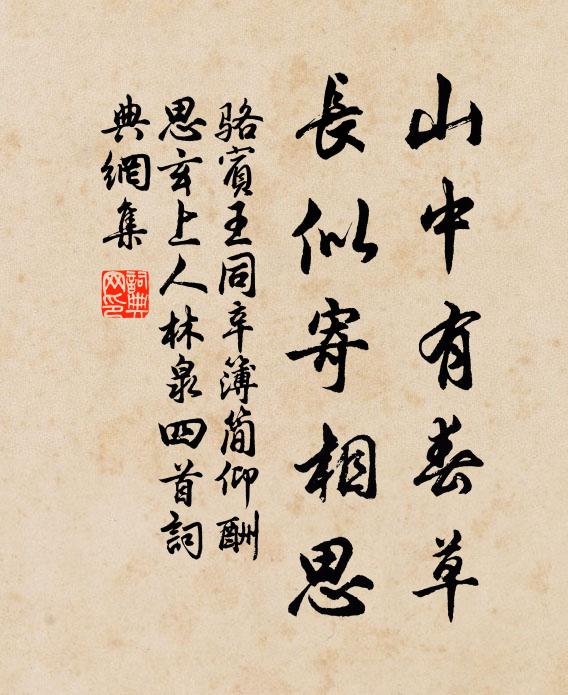 山中有春草
長似寄相思
駱賓王同辛簿簡仰酬
思玄上人林泉四首詞
典網集
詞典
网印